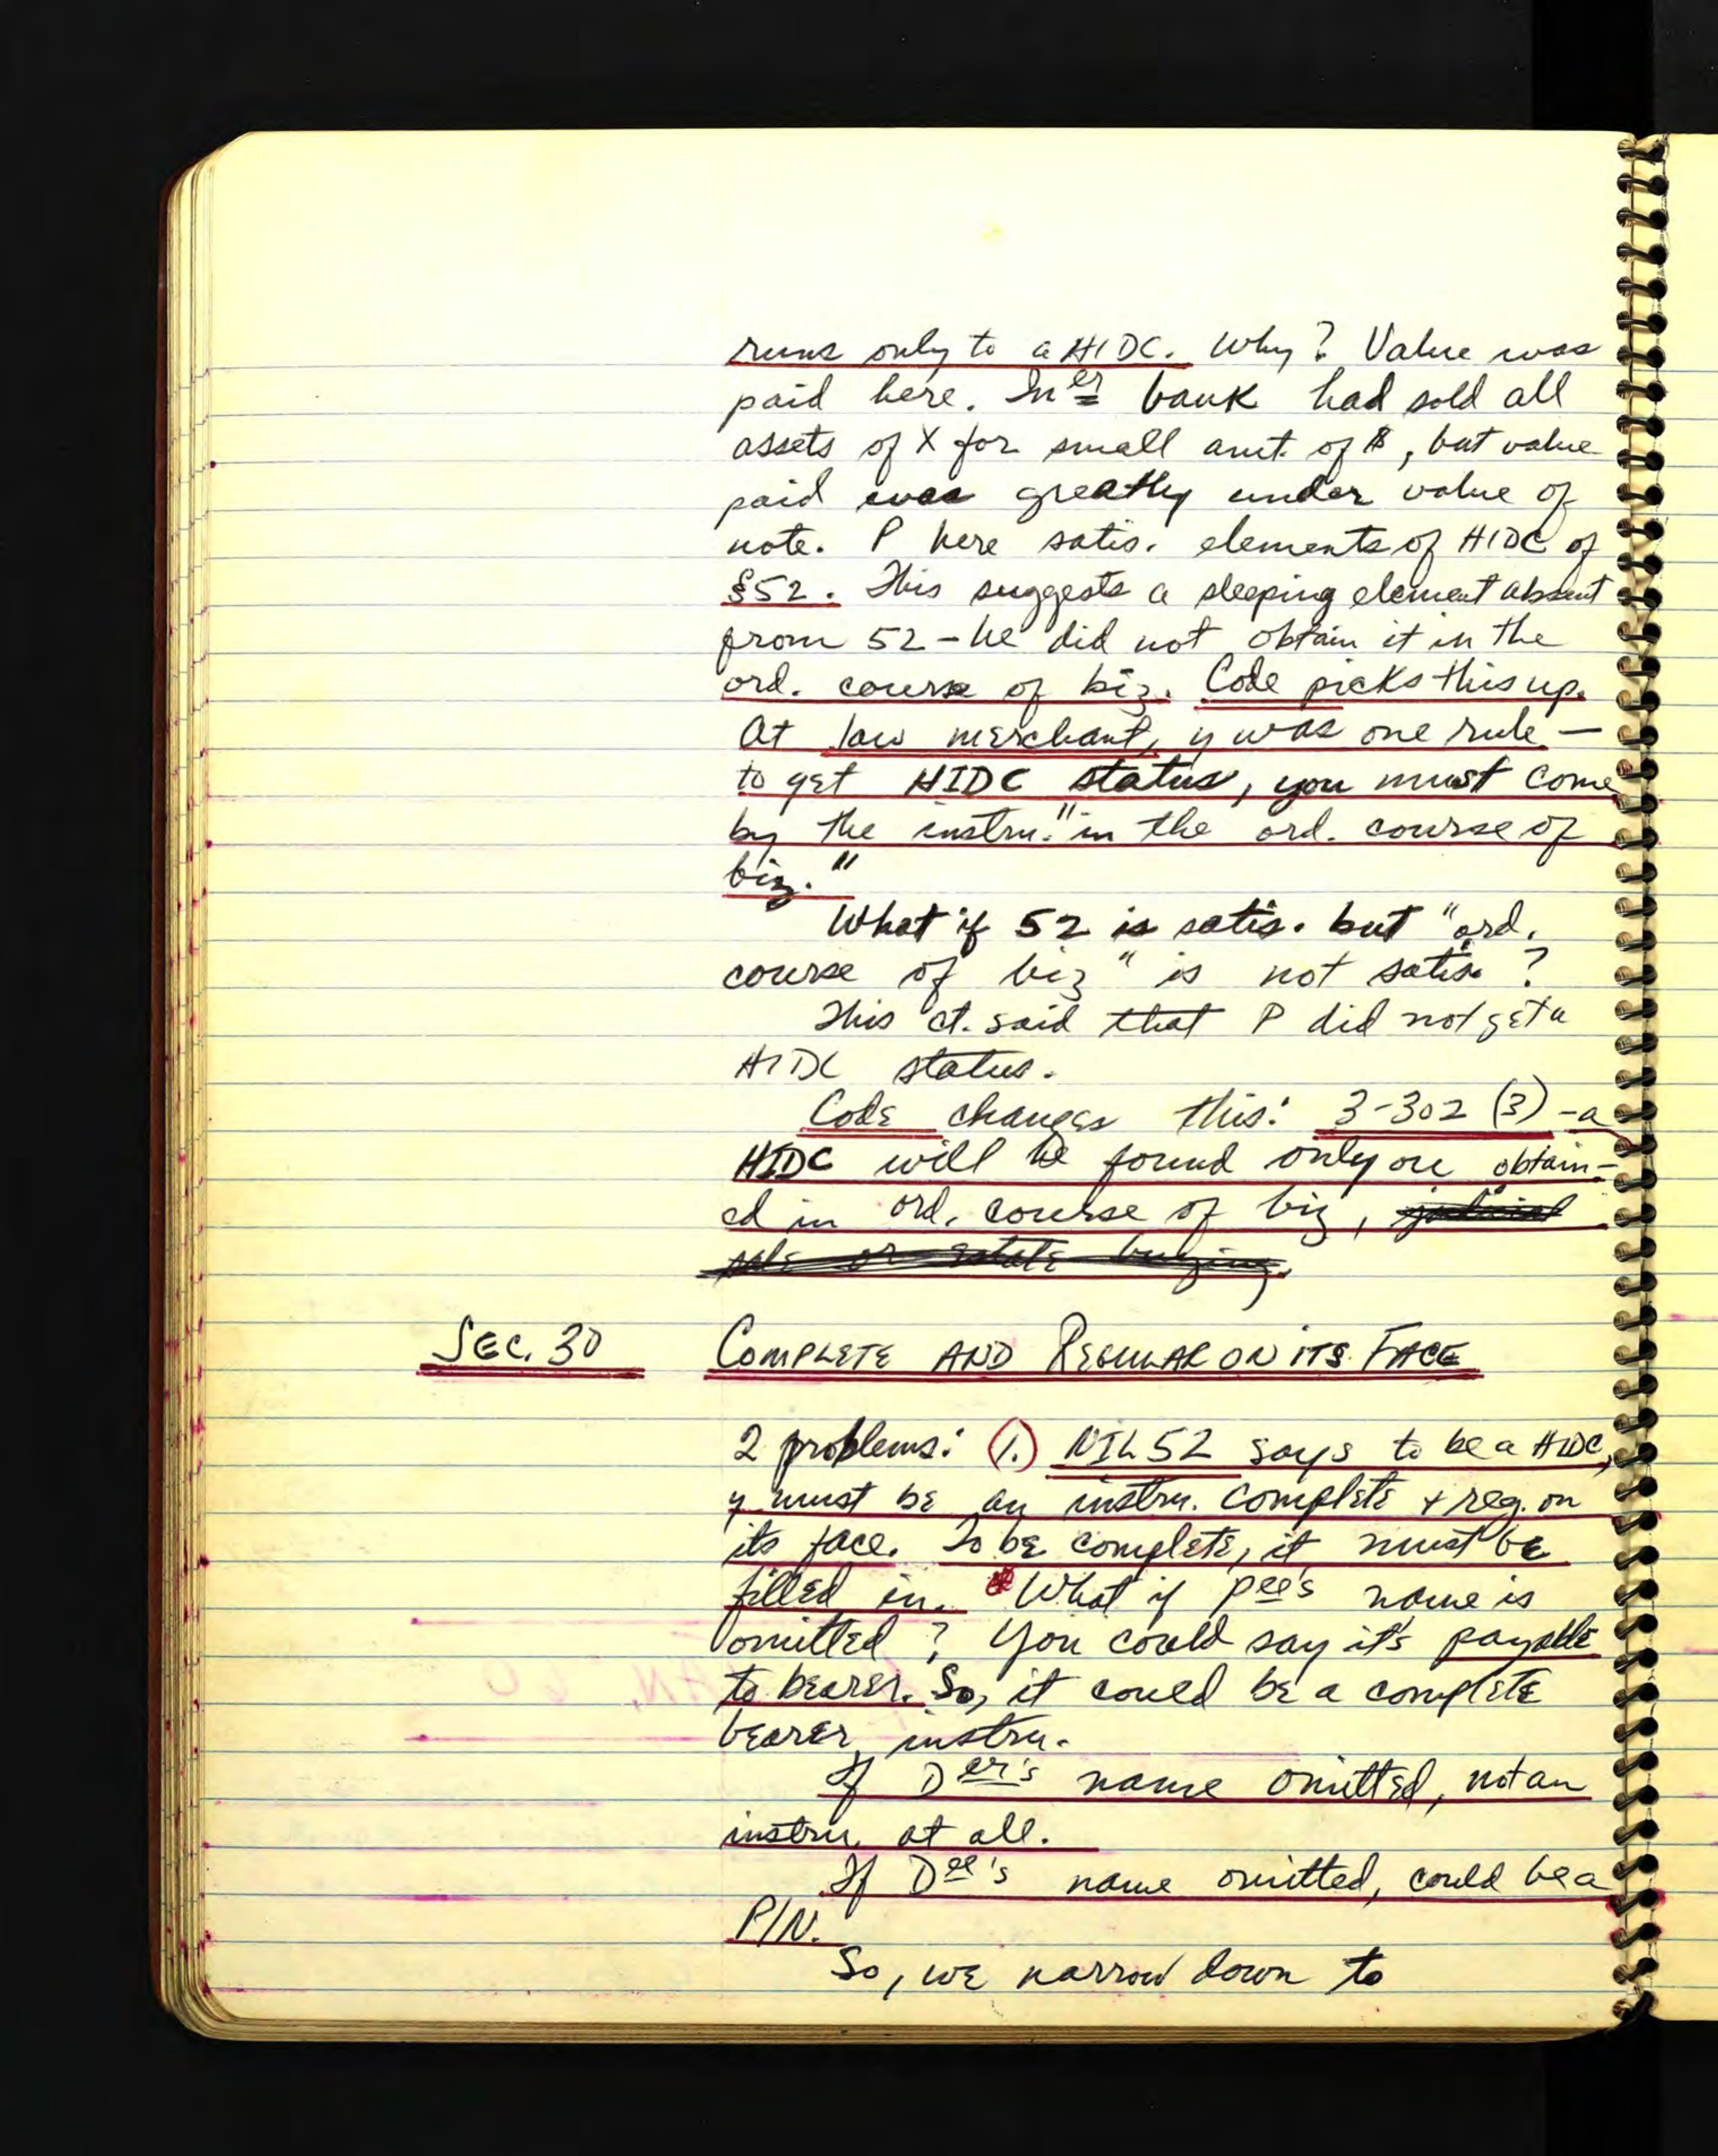 runs only to a HIDC. Why? Value was
paid here. In er bank had sold all
assets of X for small amt. of $, but value
paid was greatly under value of
note. P here satis. elements of HIDC of
§52. This suggests a sleeping element absent
from 52 - he did not obtain it in the
ord. course of biz. Code picks this up.
At law merchant, y was one rule —
to get HIDC status, you must come
by the instru. "in the ord. course of
biz."
What if 52 is satis. but "ord.
course of biz" is not satis?
This ct. said that P did not get a
HIDC status.
Code changes this: 3-302 (3) - a
HIDC will be found only on obtain-
ed in ord. course of biz, judicial
sale or estate buying.
SEC. 30 COMPLETE AND REGULAR ON ITS FACE
2 problems: (1.) NIL 52 says to be a HIDC,
y must be an instru. complete + reg. on
its face. To be complete, it must be
filled in. What if pee's name is
omitted? You could say it's payable
to bearer. So, it could be a complete
bearer instru.
If Der's name omitted, not an
instru. at all.
If Dee's name omitted, could be a
P/N.
So, we narrow down to